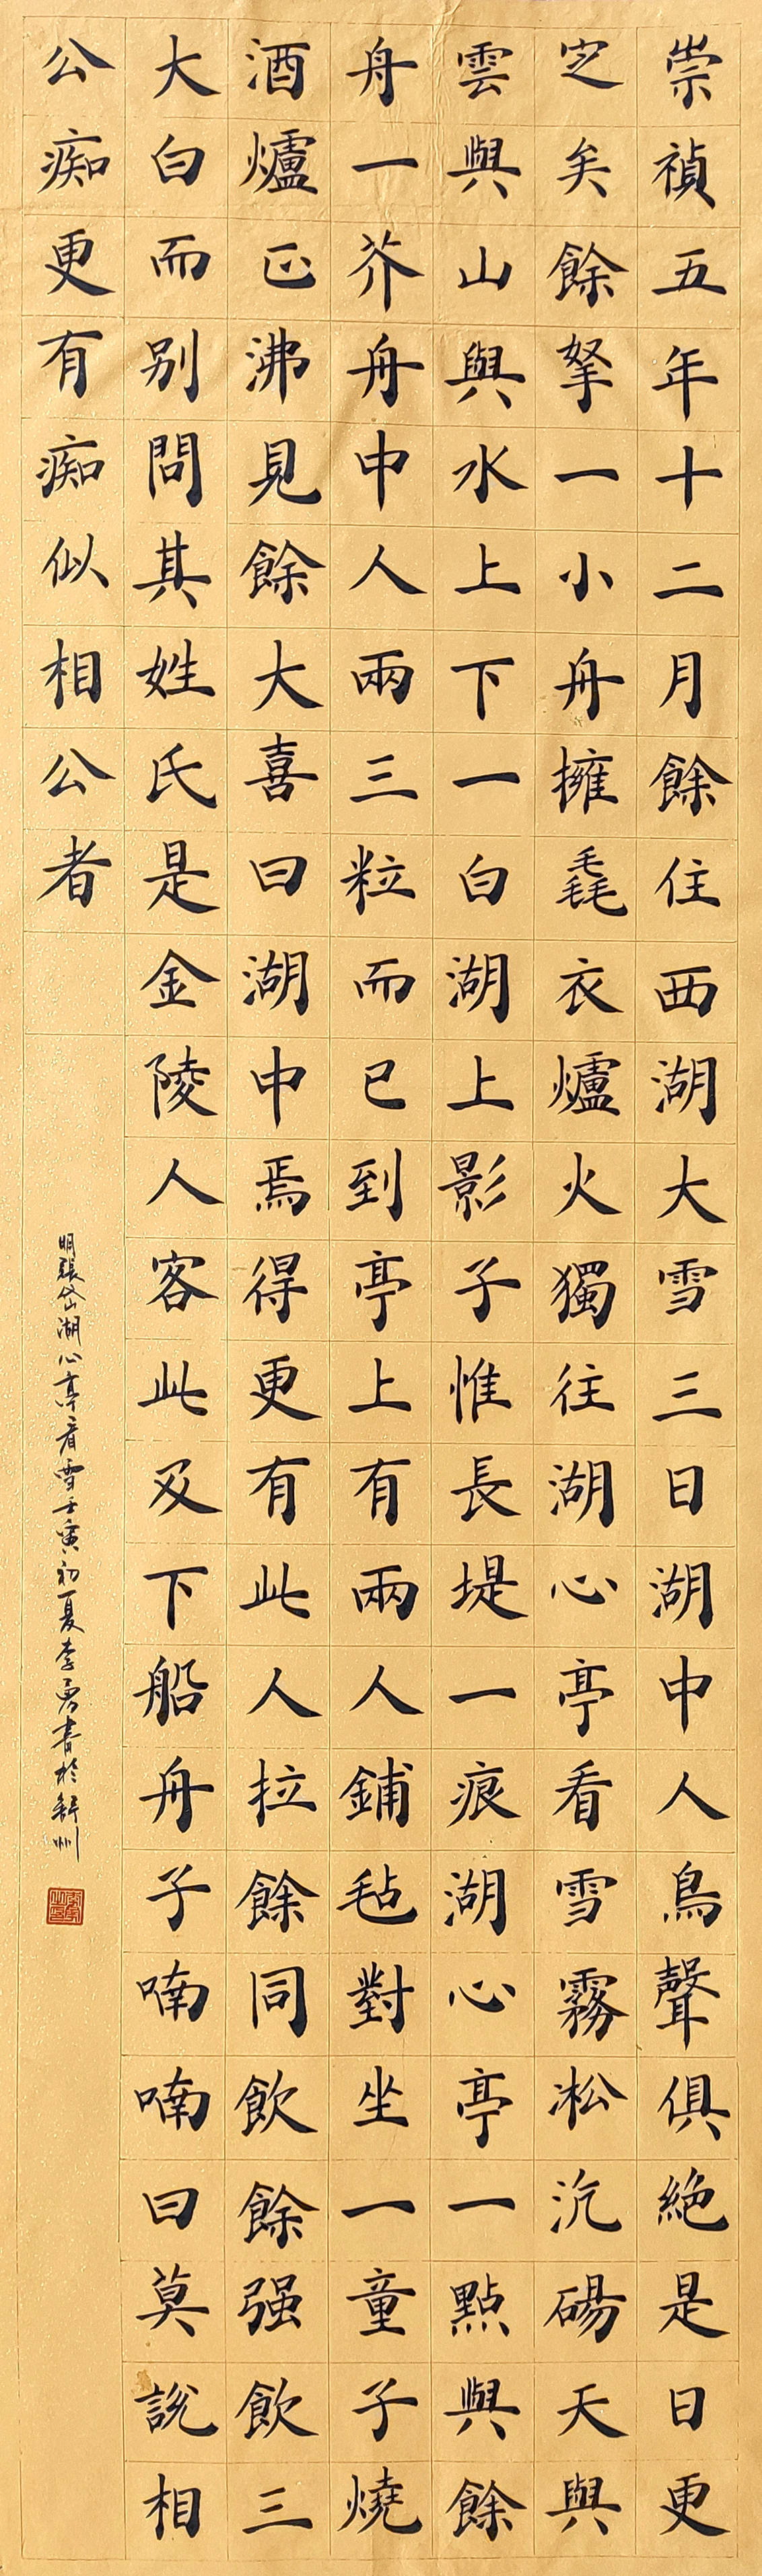 崇禎五年十二月餘住西湖大雪三日湖中人鳥聲俱絕是日更
定矣餘拏一小舟擁毳衣爐火獨往湖心亭看雪霧凇沆碭天與
雲與山與水上下一白湖上影子惟長堤一痕湖心亭一點與餘
舟一芥舟中人兩三粒而已到亭上有兩人鋪毡對坐一童子燒
酒爐正沸見餘大喜曰湖中焉得更有此人拉餘同飲餘强飲三
大白而别問其姓氏是金陵人客此及下船舟子喃喃曰莫說相
公痴更有痴似相公者
明張岱湖心亭看雪壬寅初夏李勇書於舒州